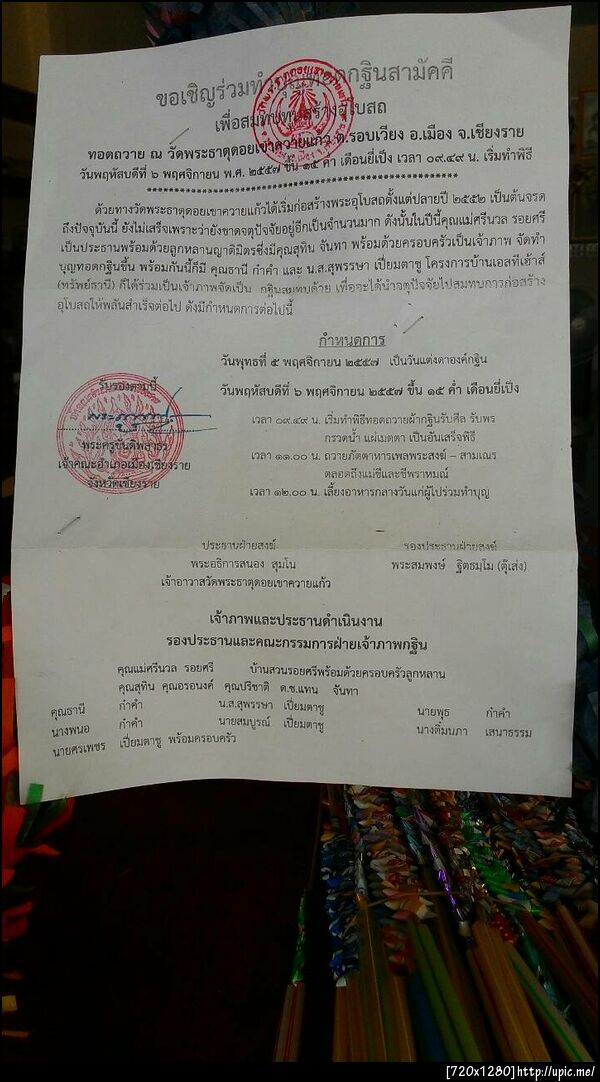 ขอเชิญร่วมทำบุญทอดกฐินสามัคคี
เพื่อสมทบทุนสร้างอุโบสถ
ทอดถวาย ณ วัดพระธาตุดอยเขาควายแก้ว ต.รอบเวียง อ.เมือง จ.เชียงราย
วันพฤหัสบดีที่ ๖ พฤศจิกายน พ.ศ. ๒๕๕๗ ขึ้น ๑๕ ค่ำ เดือนยี่เป็ง เวลา ๐๙.๔๙ น. เริ่มทำพิธี
ด้วยทางวัดพระธาตุดอยเขาควายแก้วได้เริ่มก่อสร้างพระอุโบสถตั้งแต่ปลายปี ๒๕๕๒ เป็นต้นจรด
ถึงปัจจุบันนี้ ยังไม่เสร็จเพราะว่ายังขาดจตุปัจจัยอยู่อีกเป็นจำนวนมาก ดังนั้นในปีนี้คุณแม่ศรีนวล รอยศรี
เป็นประธานพร้อมด้วยลูกหลานญาติมิตรซึ่งมีคุณสุทิน จันทา พร้อมด้วยครอบครัวเป็นเจ้าภาพ จัดทำ
บุญทอดกฐินขึ้น พร้อมกันนี้ก็มี คุณธานี กำคำ และ น.ส.สุพรรษา เปี่ยมตาชู โครงการบ้านเอสทีเฮ้าส์
(ทรัพย์ธานี) ก็ได้ร่วมเป็นเจ้าภาพจัดเป็น กฐินสมทบด้วย เพื่อจะได้นำจตุปัจจัยไปสมทบการก่อสร้าง
อุโบสถให้พลันสำเร็จต่อไป ดังมีกำหนดการต่อไปนี้
กำหนดการ
วันพุธที่ ๕ พฤศจิกายน ๒๕๕๗ เป็นวันแต่งดาองค์กฐิน
วันพฤหัสบดีที่ ๖ พฤศจิกายน ๒๕๕๗ ขึ้น ๑๕ ค่ำ เดือนยี่เป็ง
รับรองตามนี้
พระครูขันติพลาธร
เจ้าคณะอำเภอเมืองเชียงราย
จังหวัดเชียงราย
เวลา ๐๙.๔๙ น. เริ่มทำพิธีทอดถวายผ้ากฐินรับศีล รับพร
กรวดน้ำ แผ่เมตตา เป็นอันเสร็จพิธี
เวลา ๑๑.๐๐ น. ถวายภัตตาหารเพลพระสงฆ์ – สามเณร
ตลอดถึงแม่ชีและชีพราหมณ์
เวลา ๑๒.๐๐ น. เลี้ยงอาหารกลางวันแก่ผู้ไปร่วมทำบุญ
ประธานฝ่ายสงฆ์ รองประธานฝ่ายสงฆ์
พระอธิการสนอง สุมโน พระสมพงษ์ ฐิตธมฺโม (ตุ๊เส่ง)
เจ้าอาวาสวัดพระธาตุดอยเขาควายแก้ว
เจ้าภาพและประธานดำเนินงาน
รองประธานและคณะกรรมการฝ่ายเจ้าภาพกฐิน
คุณแม่ศรีนวล รอยศรี บ้านสวนรอยศรีพร้อมด้วยครอบครัวลูกหลาน
คุณสุทิน คุณอรอนงค์ คุณปริชาติ ด.ช.แทน จันทา
คุณธานี กำคำ น.ส.สุพรรษา เปี่ยมตาชู นายพุธ กำคำ
นางพนอ กำคำ นายสมบูรณ์ เปี่ยมตาชู นางติ๋มนภา เสนาธรรม
นายศรเพชร เปี่ยมตาชู พร้อมครอบครัว
[720x1280]http://upic.me/